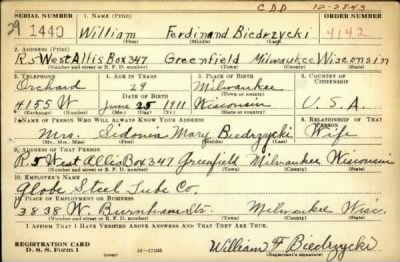 CDD 12-28-43
SERIAL NUMBER 1. NAME (Print) ORDER NUMBER
29 1440 William Ferdinand Biedrzycki 4142
(First) (Middle) (Last)
2. ADDRESS (Print)
R.5 West Allis Box 347 Greenfield Milwaukee Wisconsin
(Number and street or R. F. D. number) (Town) (County) (State)
3. TELEPHONE 4. AGE IN YEARS 5. PLACE OF BIRTH 6. COUNTRY OF CITIZENSHIP
Orchard 29 Milwaukee
DATE OF BIRTH (Town or county)
4155 W June 25 1911 Wisconsin U.S.A.
(Exchange) (Number) (Mo.) (Day) (Yr.) (State or country)
7. NAME OF PERSON WHO WILL ALWAYS KNOW YOUR ADDRESS 8. RELATIONSHIP OF THAT PERSON
Mrs. Sidonia Mary Biedrzycki Wife
(Mr., Mrs., Miss) (First) (Middle) (Last)
9. ADDRESS OF THAT PERSON
R.5 West Allis Box 347 Greenfield Milwaukee Wisconsin
(Number and street or R. F. D. number) (Town) (County) (State)
10. EMPLOYER'S NAME
Globe Steel Tube Co.
11. PLACE OF EMPLOYMENT OR BUSINESS
3838 W. Burnham Str. Milwaukee Wisc.
(Number and street or R. F. D. number) (Town) (County) (State)
I AFFIRM THAT I HAVE VERIFIED ABOVE ANSWERS AND THAT THEY ARE TRUE.
REGISTRATION CARD
D. S. S. Form 1
William F Biedrzycki
(Registrant's signature)